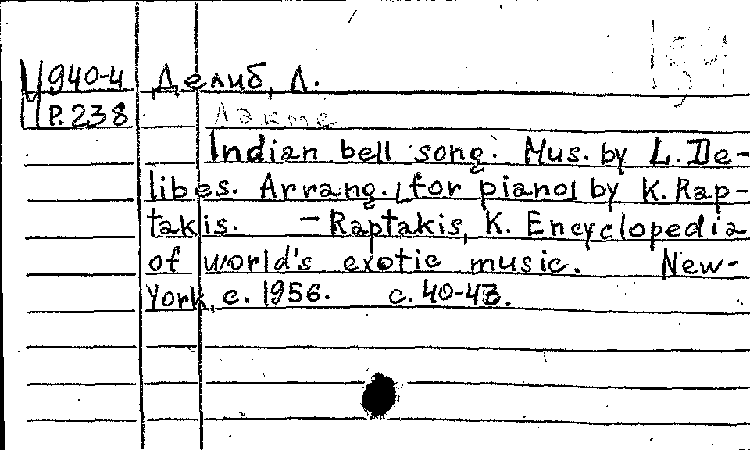 Ц940-4 Делиб, Л.
Р.238 Лакме
Indian bell song. Mus. by L. De-
libes. Arrang. [for piano] by K. Rap-
takis. — Raptakis, K. Encyclopedia
of world's exotic music. New-
York, c. 1956. c. 40-43.